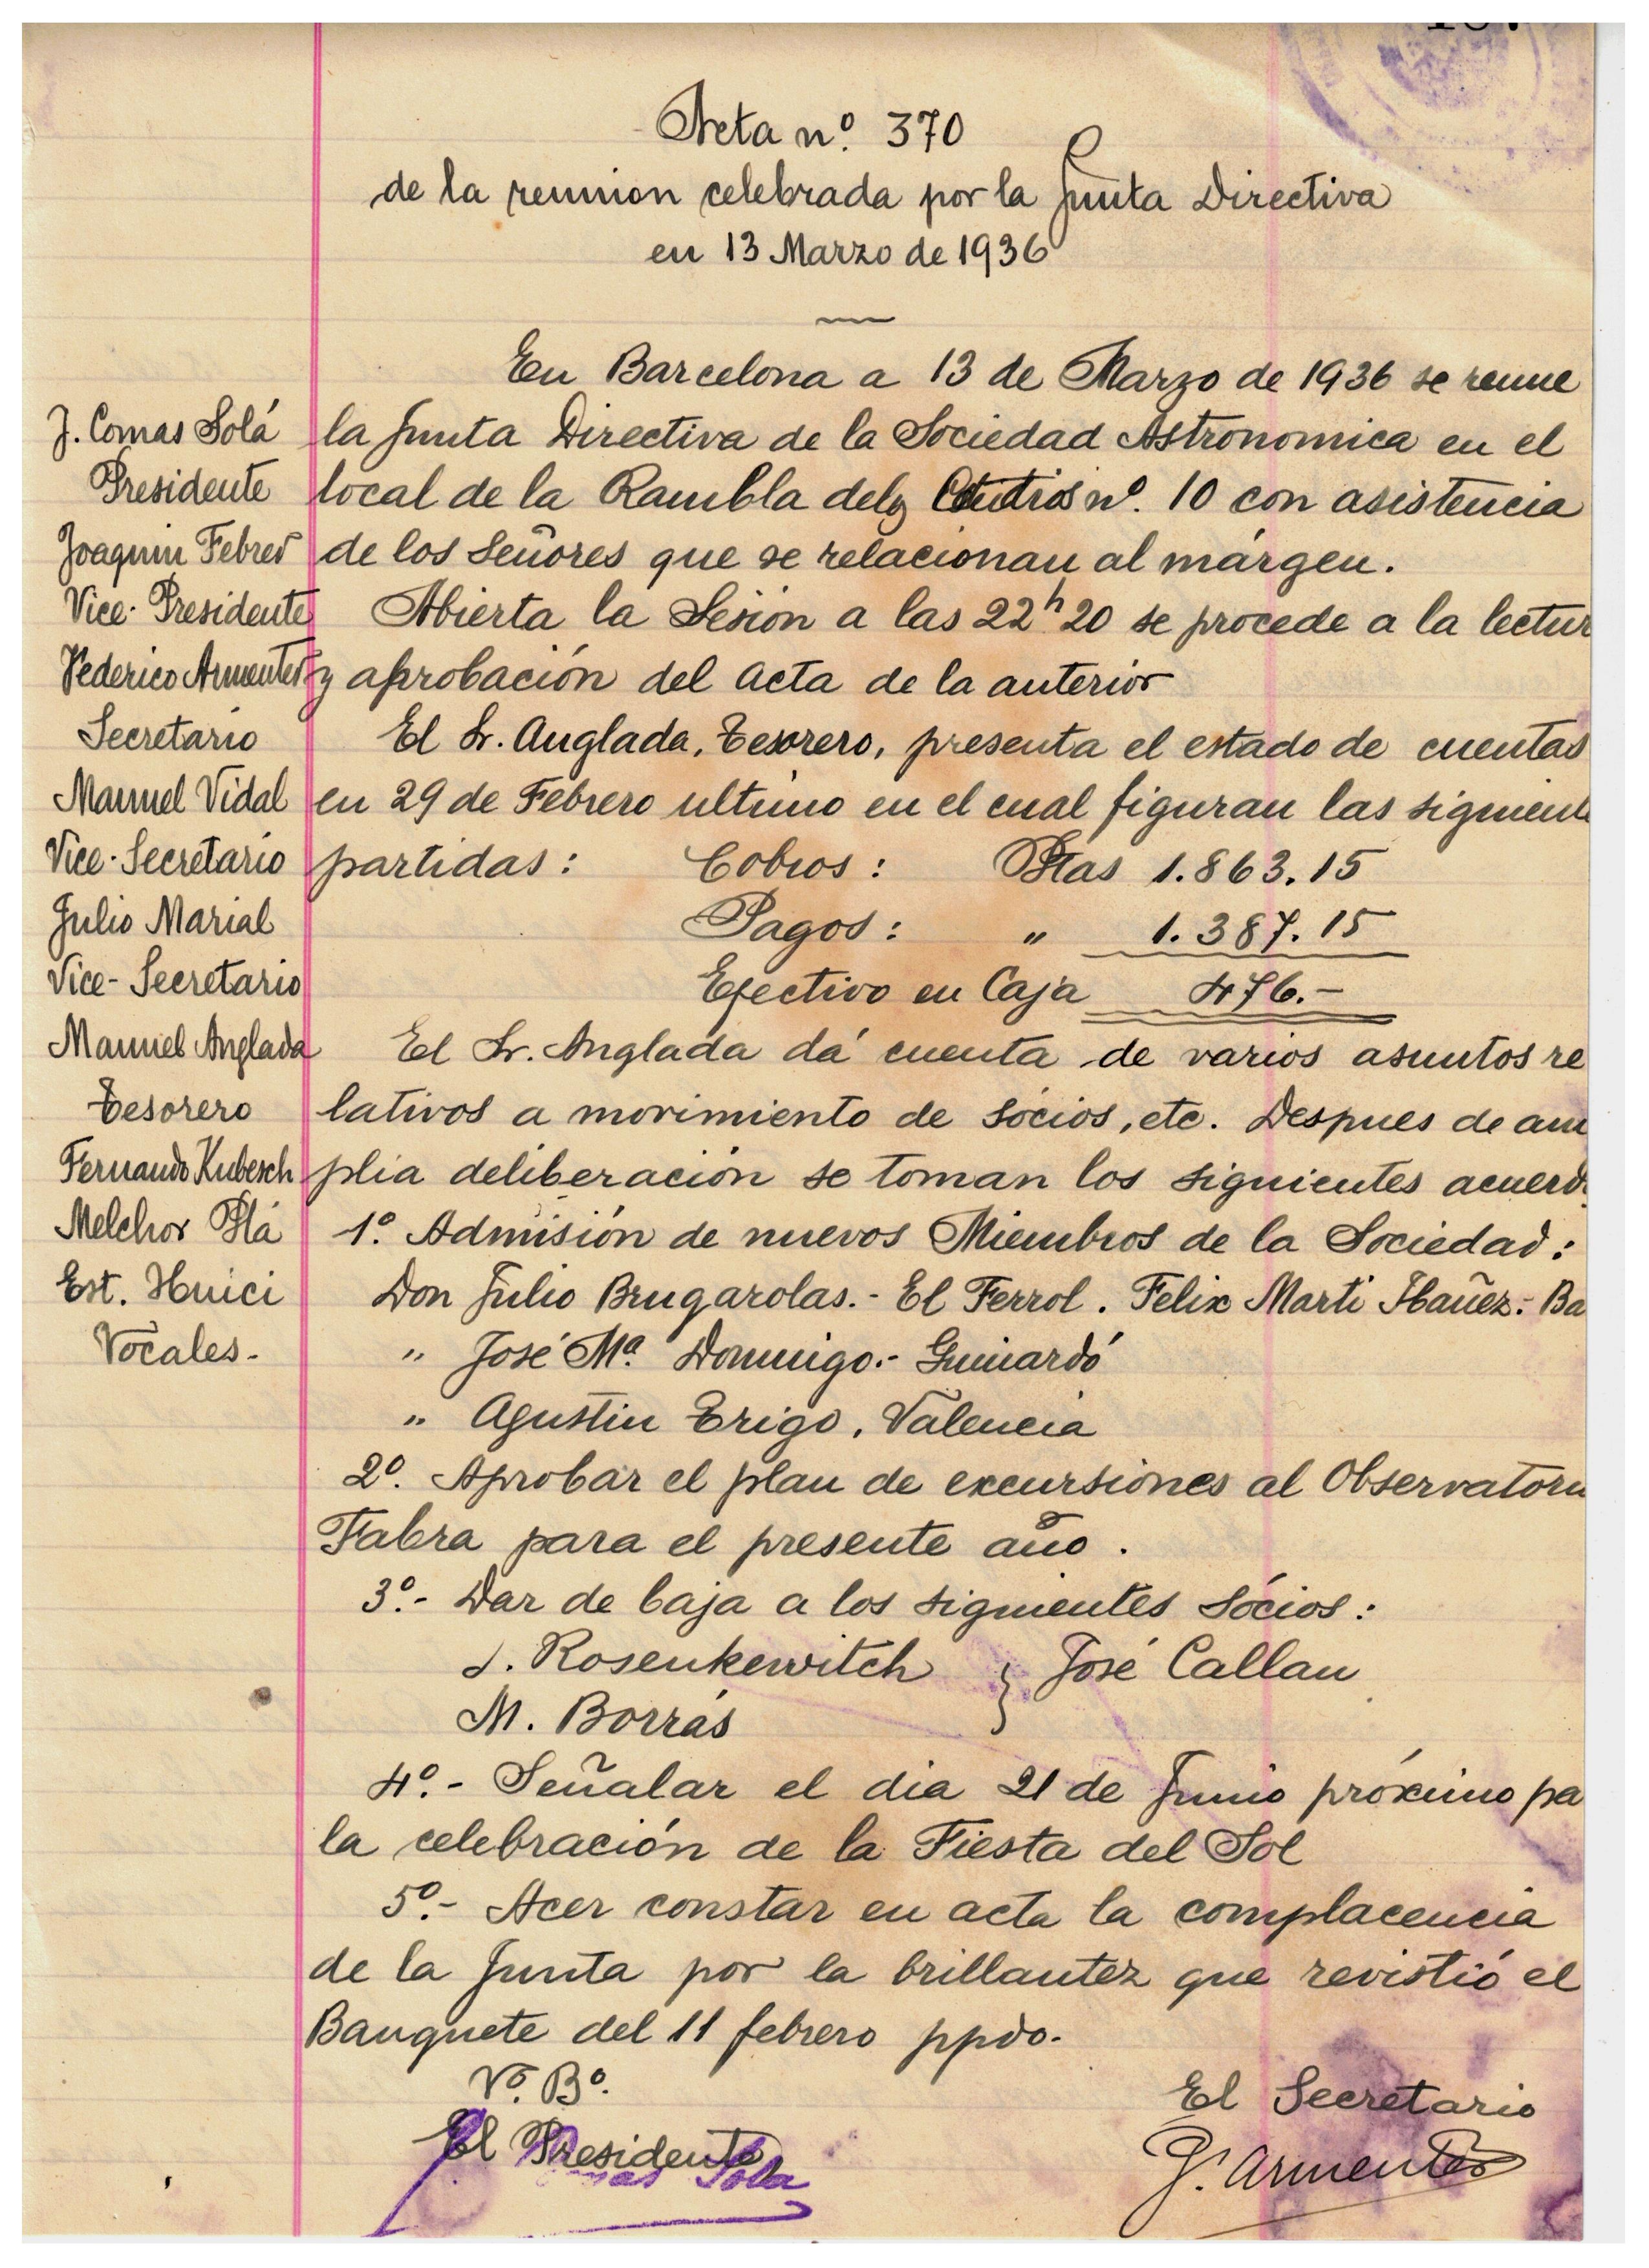 Acta nº. 370
de la reunion celebrada por la Junta Directiva
en 13 Marzo de 1936
En Barcelona a 13 de Marzo de 1936 se reune
la Junta Directiva de la Sociedad Astronomica en el
local de la Rambla del nº. 10 con asistencia
de los Señores que se relacionan al márgen.
Abierta la Sesión a las 22h 20 se procede a la lectur
y aprobación del acta de la anterior
El Sr. Anglada, Tesorero, presenta el estado de cuentas
en 29 de Febrero ultimo en el cual figuran las siguient
partidas: Cobros: Ptas 1.863.15
Pagos: " 1.387.15
Efectivo en Caja 476.-
El Sr. Anglada dá cuenta de varios asuntos re
lativos a movimiento de sócios, etc. Despues de am
plia deliberación se toman los siguientes acuerd
1º. Admisión de nuevos Miembros de la Sociedad:
Don Julio Brugarolas.- El Ferrol. Felix Marti Ibañez.- Ba
" José Mª. Domingo.- Guinardó
" Agustin Trigo, Valencia
2º. Aprobar el plan de excursiones al Observatori
Fabra para el presente año.
3º.- Dar de baja a los siguientes sócios:
J. Rosenkewitch } José Callau
M. Borrás
4º.- Señalar el dia 21 de Junio próximo pa
la celebración de la Fiesta del Sol
5º.- Acer constar en acta la complacencia
de la Junta por la brillantez que revistió el
Banquete del 11 febrero ppdo.
Vº. Bº.
El Presidente
Comas Solá
El Secretario
F. Armenter
J. Comas Solá
Presidente
Joaquin Febrer
Vice-Presidente
Federico Armenter
Secretario
Manuel Vidal
Vice-Secretario
Julio Marial
Vice-Secretario
Manuel Anglada
Tesorero
Fernando Kubesch
Melchor Plá
Est. Huici
Vocales.-